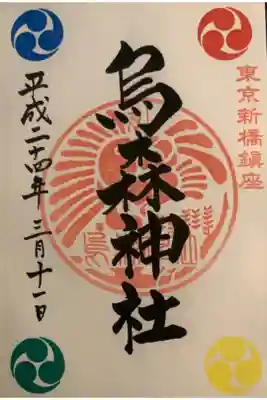 東京新橋鎮座
烏森神社
平成二十四年 三月十一日